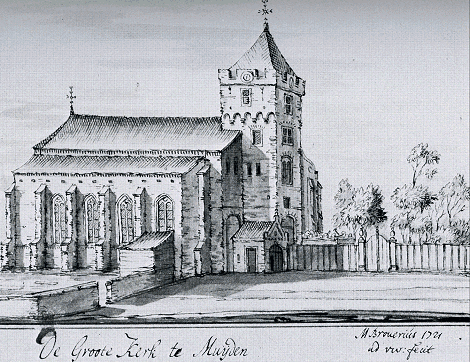 De Groote Kerk te Muyden
M. Brouerius 1721
ad viv: fecit